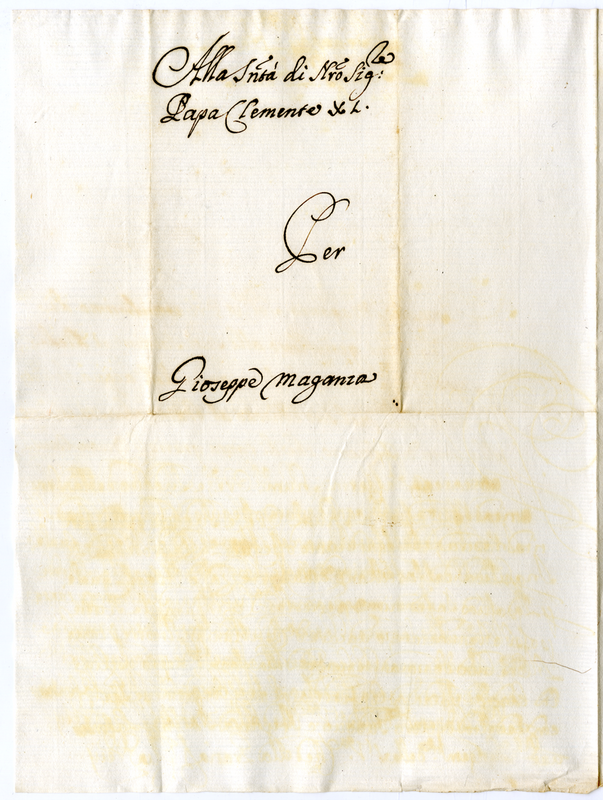 Alla Sntà di Nro Sigre
Papa Clemente XI.
Per
Gioseppe Maganza